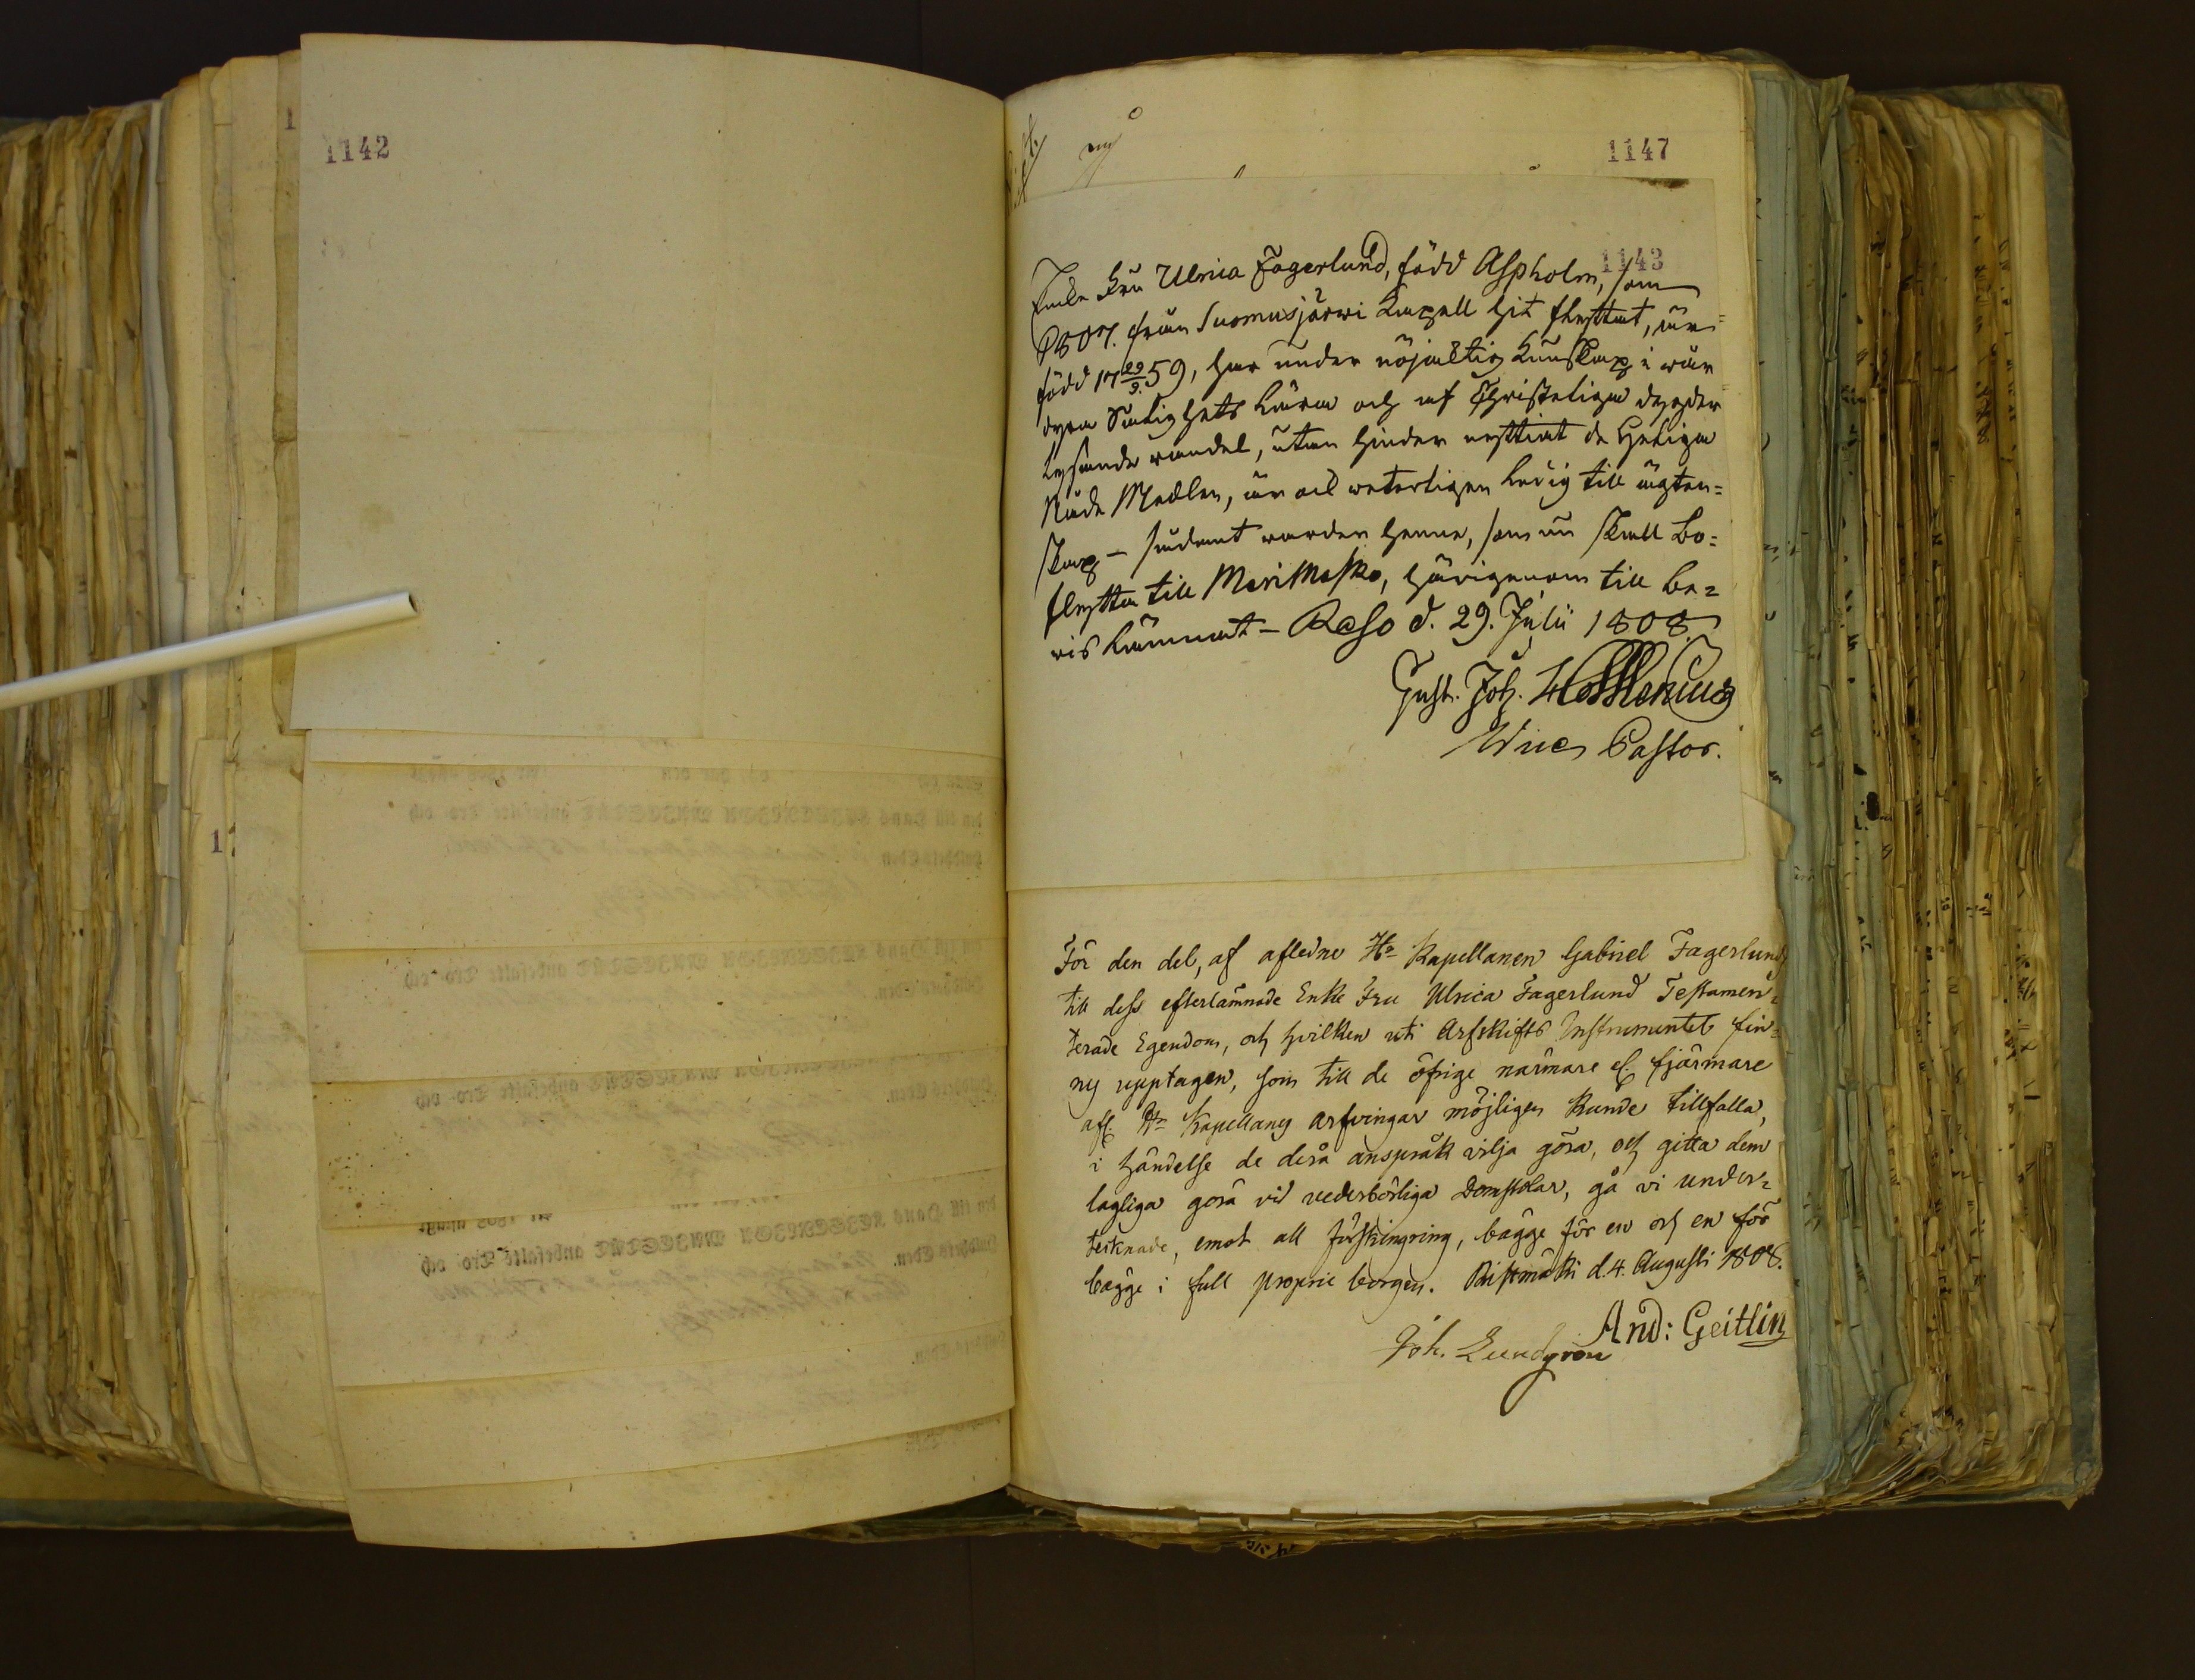 1142
1147
1143
Enke Fru Ulrica Fagerlund, född Aspholm, som
1807. från Suomusjärwi Kapell hit flyttat, är
född 17 29/9. 59, har under nöjacktig kunskap i wår
dyra Salighets Lära och af Christeliga dygder
lysande wandel, utan hinder nyttiat de Heliga
Nåde Medlen, är ock weterligen ledig till ägten=
skap – sådant warder henne, som nu skall bo=
flytta till Masko, härigenom till be=
vis lämnat – Reso d. 29. Julii 1808
Gust. Joh.
Vice Pastor.
För den del, af afledne Hr Kapellanen Gabriel Fagerlund
till dess efterlämnade Enke Fru Ulrica Fagerlund Testamen=
terade Egendom, och hvilken uti Arfskifts Instrumentet fin=
nes upptagen, som till de öfrige närmare el. fjärmare
afl. Hr Kapellans arfvingar möjligen kunde tillfalla,
i händelse de derå anspråk vilja göra, och gitta dem
lagliga göra vid vederbörliga Domstolar, gå vi under=
teiknade, emot all förskingring, bägge för en och en för
bägge i full proprie borgen. Ristimäki d. 4. Augusti 1808.
And: Geitlin
Joh. Lundgren